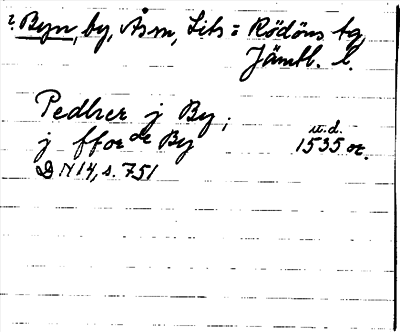 ? Byn, by, Ås sn, Lits = Rödöns tg
Jämtl. l.
Pedher j By;
j ffor de By
u.d.
1535 or.
DN 14, s. 751